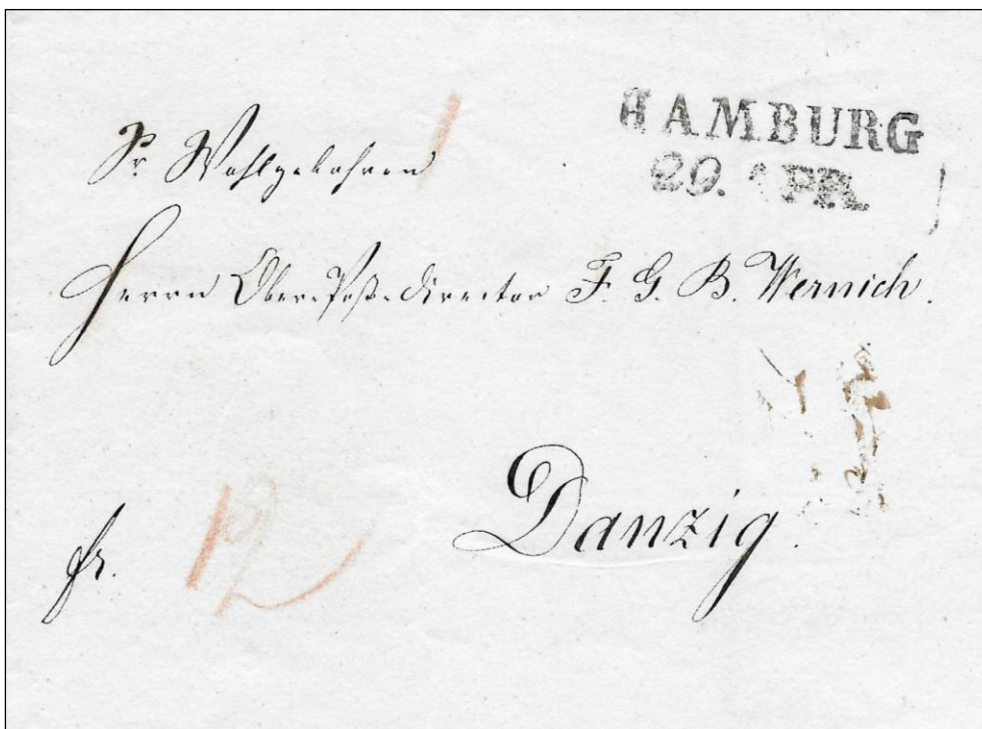 HAMBURG
29. APR.
Sr. Wohlgebohren
Herrn Ober-Post-Director F. G. B. Wernich.
Danzig.
fr. 12